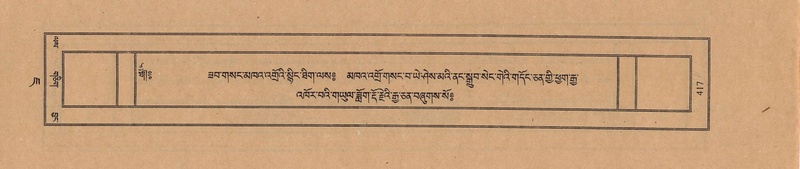 ཟབ་གསང་མཁའ་འགྲོའི་སྙིང་ཐིག་ལས༔ མཁའ་འགྲོ་གསང་བ་ཡེ་ཤེས་མའི་ནང་སྒྲུབ་སེང་གེའི་གདོང་ཅན་གྱི་ཕྱག་རྒྱ་
འཁོར་བའི་གཡུལ་ཟློག་རྡོ་རྗེའི་རྒྱ་ཅན་བཞུགས་སོ༔
417